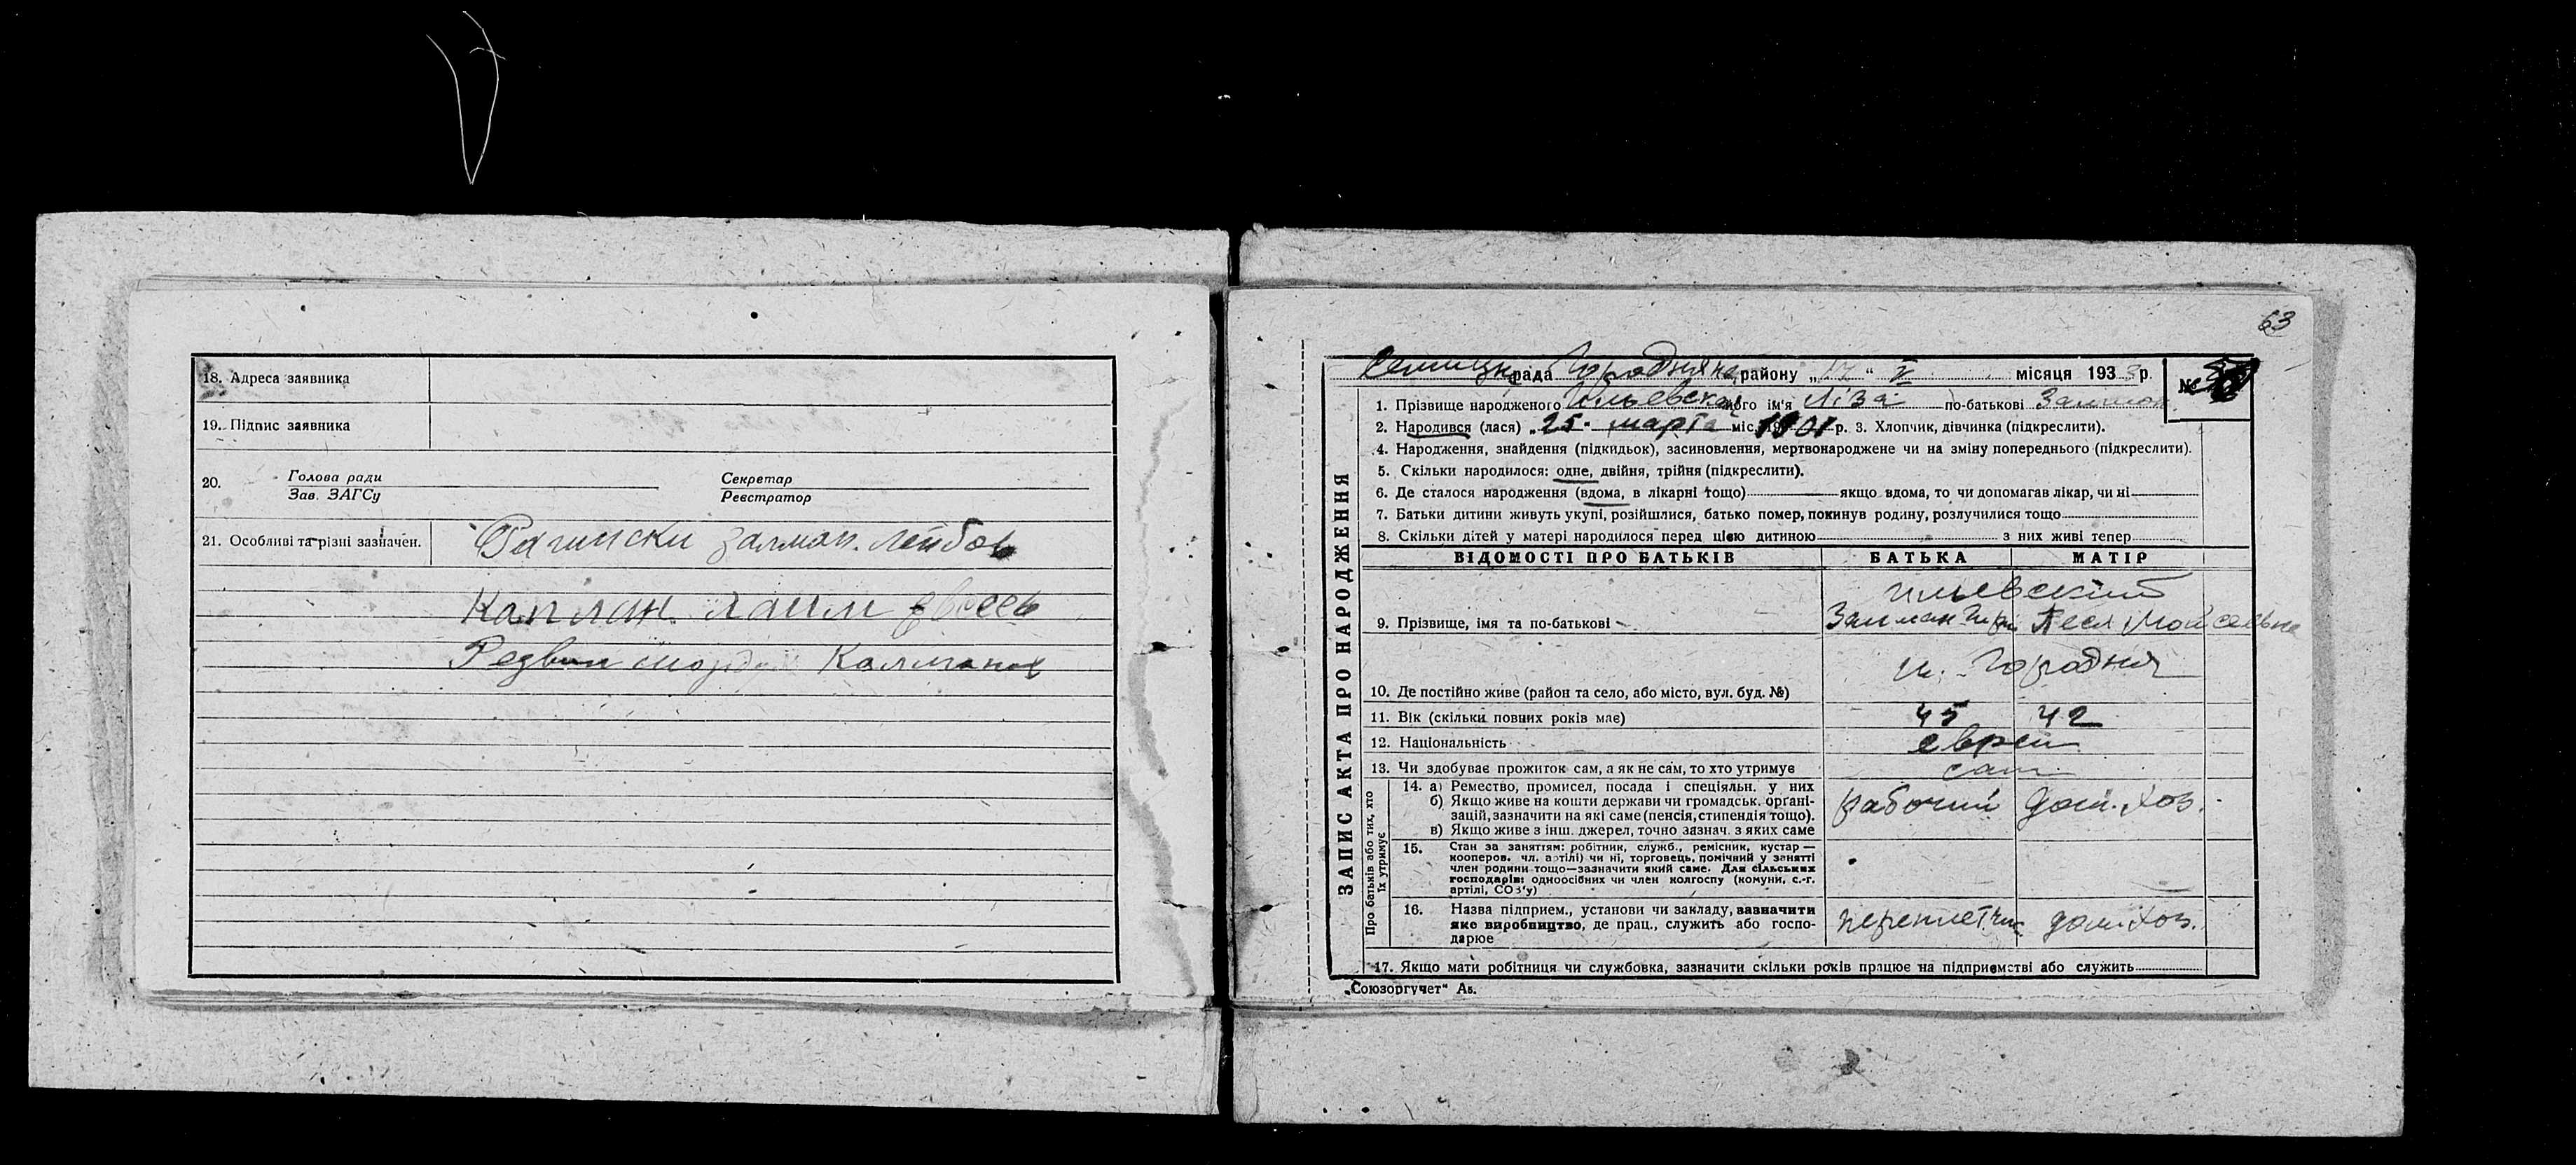 18. Адреса заявника
19. Підпис заявника
20. Голова ради Секретар
Зав. ЗАГСу Реєстратор
21. Особливі та різні зазначен.
залман. Лейбов
Каплан Хаим
Калманов
63
рада району „17“ V місяця 1933р. №
1. Прізвище народженого Ильевская його ім'я Ліза по-батькові Залмон.
2. Народився (лася) „25. марта міс. 1901 р. 3. Хлопчик, дівчинка (підкреслити).
4. Народження, знайдення (підкидьок), засиновлення, мертвонароджене чи на зміну попереднього (підкреслити).
5. Скільки народилося: одне, двійня, трійня (підкреслити).
6. Де сталося народження (вдома, в лікарні тощо) якщо вдома, то чи допомагав лікар, чи ні
7. Батьки дитини живуть укупі, розійшлися, батько помер, покинув родину, розлучилися тощо
8. Скільки дітей у матері народилося перед цією дитиною з них живі тепер
ЗАПИС АКТА ПРО НАРОДЖЕННЯ
ВІДОМОСТІ ПРО БАТЬКІВ БАТЬКА МАТІР
Ильевский
9. Прізвище, імя та по-батькові Залман Песя Мойсеевна
м. Городня
10. Де постійно живе (район та село, або місто, вул. буд. №)
11. Вік (скільки повних років має) 45 42
12. Національність евреи
13. Чи здобуває прожиток сам, а як не сам, то хто утримує сам
Про батьків або тих, хто їх утримує
14. а) Ремество, промисел, посада і спеціяльн. у них
б) Якщо живе на кошти держави чи громадськ. органі-
зацій, зазначити на які саме (пенсія, стипендія тощо).
в) Якщо живе з інш. джерел, точно зазнач. з яких саме
рабочий дом. хоз.
15. Стан за заняттям: робітник, служб., ремісник, кустар —
кооперов. чл. артілі) чи ні, торговець, помічний у занятті
член родини тощо—зазначити який саме. Для сільських
господарів: одноосібних чи член колгоспу (комуни, с.-г.
артілі, СОЗ'у)
16. Назва підприєм., установи чи закладу, зазначити
яке виробництво, де прац., служить або госпо-
дарює
переплетчик дом. хоз.
17. Якщо мати робітниця чи службовка, зазначити скільки років працює на підприємстві або служить
„Союзоргучет“ А5.